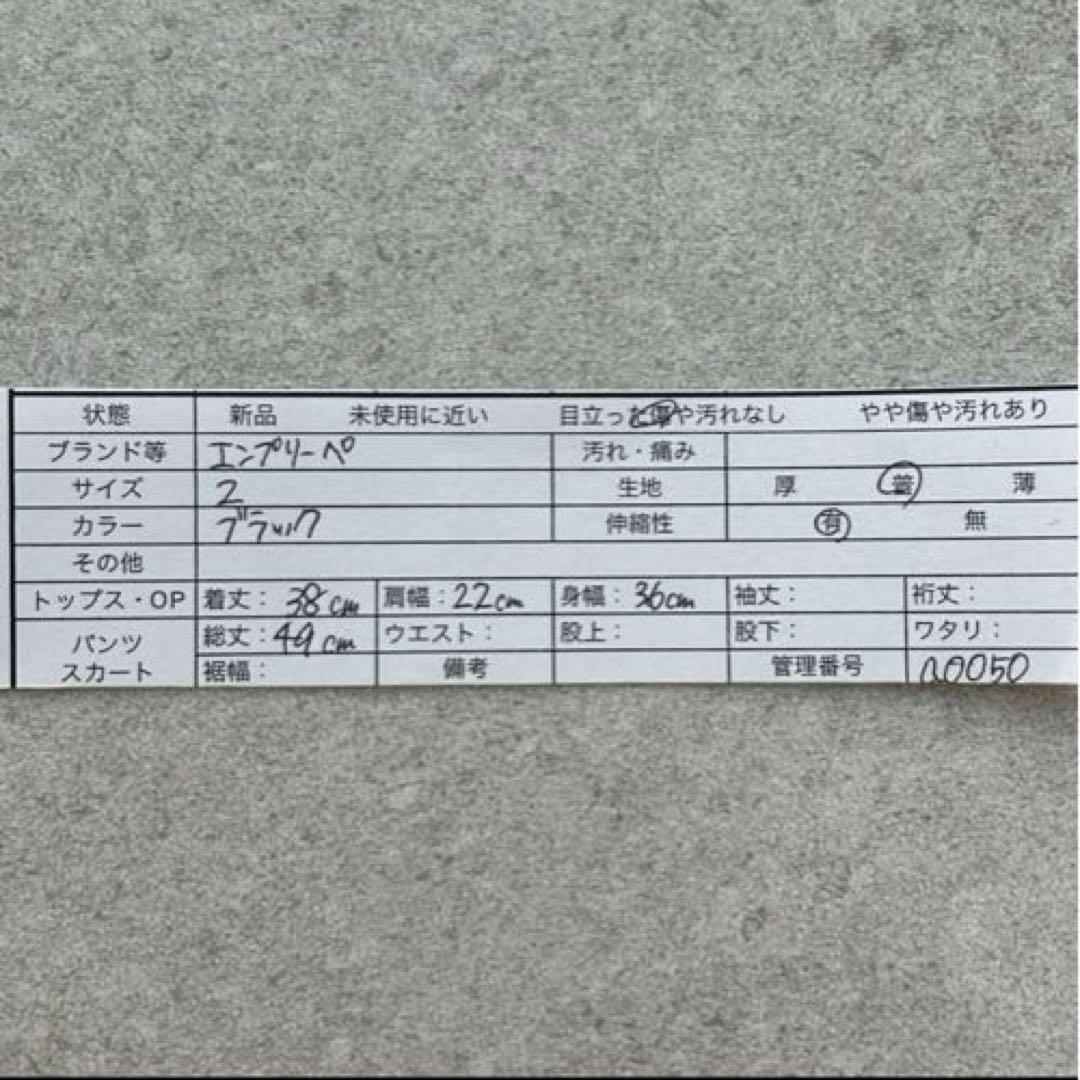 状態 新品 未使用に近い 目立った傷や汚れなし やや傷や汚れあり
ブランド等 エンプリーペ 汚れ・痛み
サイズ 2 生地 厚 普 薄
カラー ブラック 伸縮性 有 無
その他
トップス・OP 着丈: 38cm 肩幅: 22cm 身幅: 36cm 袖丈: 裄丈:
パンツ スカート 総丈: 49cm ウエスト: 股上: 股下: ワタリ:
裾幅: 備考 管理番号 a0050